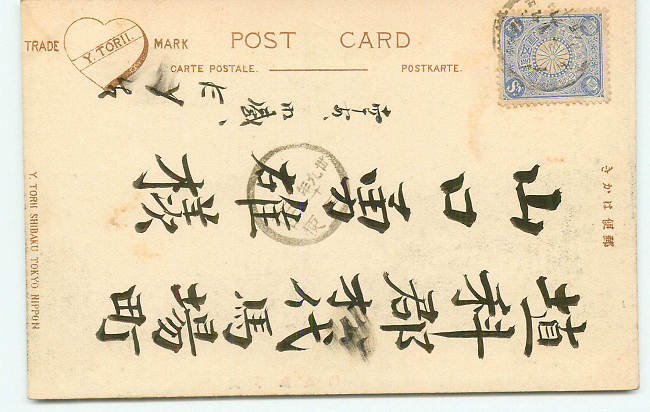 TRADE Y. TORII. MARK
POST CARD
CARTE POSTALE.
POSTKARTE.
きかは便郵
埴科郡松代馬場町
山口勇雄様
Y TORII SHIBAKU TOKYO NIPPON